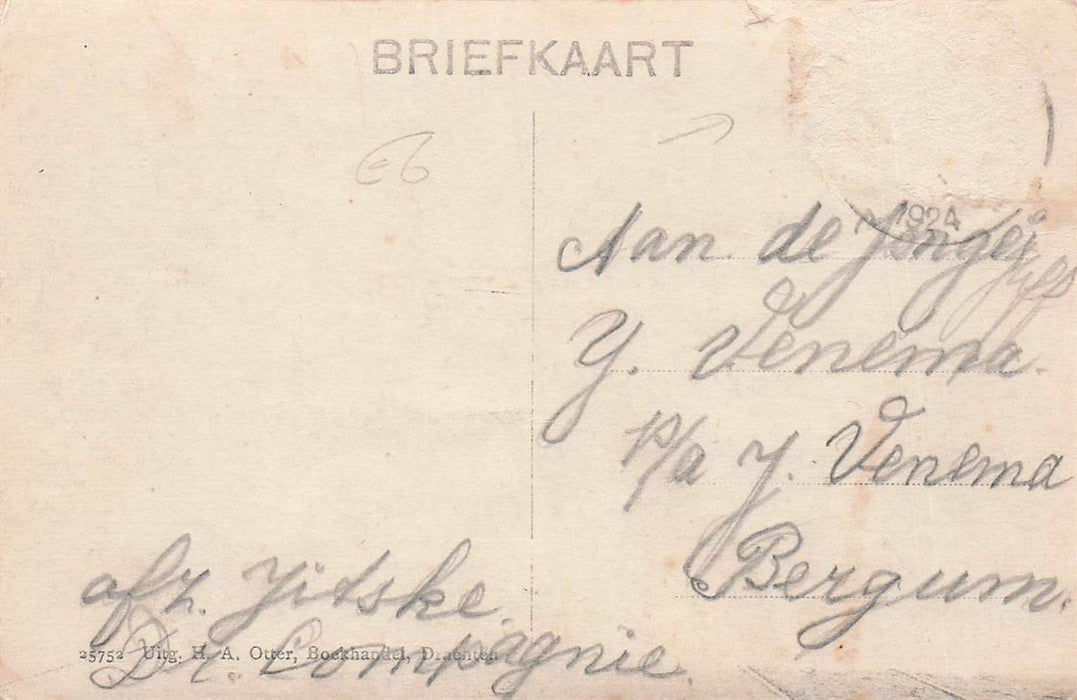 BRIEFKAART
1924
Aan de
Y. Venema.
p/a J. Venema
Bergum.
afz. Jitske.
Dr. Compagnie.
25752 Uitg. H. A. Otter, Boekhandel, Drachten